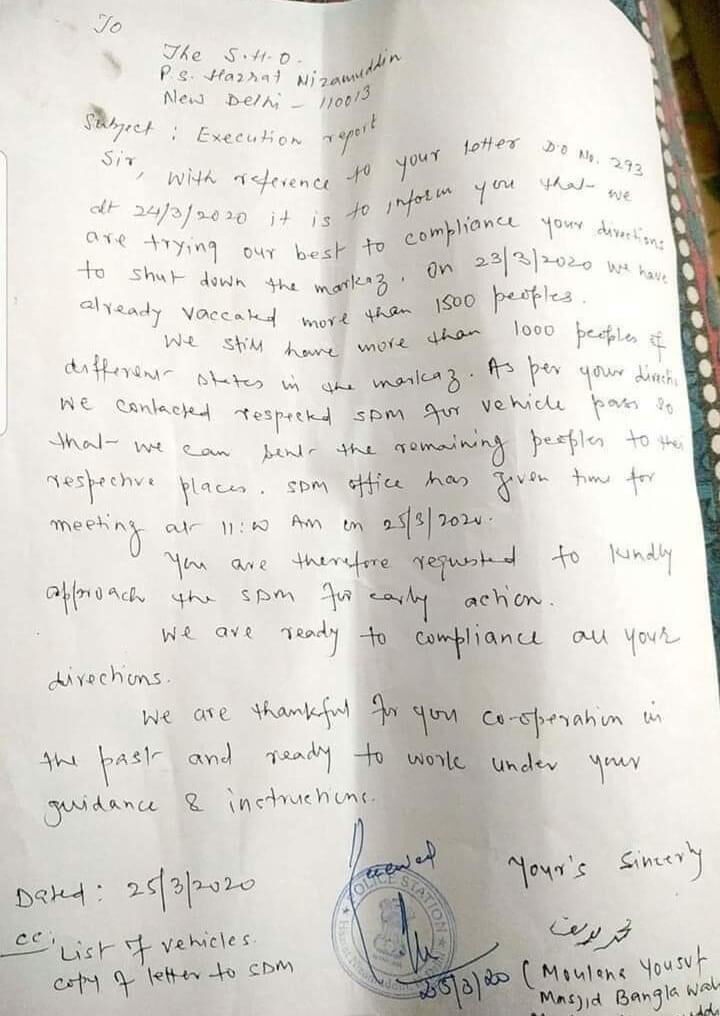 To
The S.H.O.
P.S. Hazrat Nizamuddin
New Delhi - 110013
Subject : Execution report
Sir,
With reference to your lotter D.O No. 293
dt 24/3/2020 it is to inform you that we
are trying our best to compliance your directions
to shut down the markaz. On 23/3/2020 we have
already vaccated more than 1500 peoples.
We still have more than 1000 peoples of
different states in the markaz. As per your directi
we contacted respected SDM for vehicle pass so
that we can sent the remaining peoples to their
respective places. SDM office has given time for
meeting at 11:00 AM on 25/3/2020.
You are therefore requested to kindly
approach the SDM for early action.
We are ready to compliance all your
directions.
We are thankful for you co-operation in
the past and ready to work under your
guidance & instructions.
Received
POLICE STATION
Hazrat Nizamuddin
25/3/20
Your's Sincerly
محمد يوسف
(Moulana Yousuf
Masjid Bangla Wal
Dated : 25/3/2020
cc: List of vehicles.
copy of letter to SDM